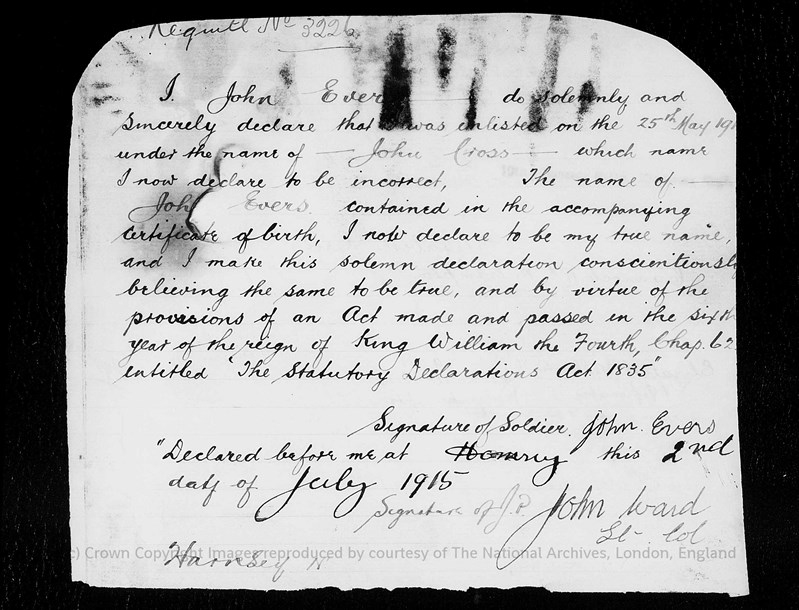 Regmtl No 3226
I. John Evers do solemnly and
sincerely declare that I was enlisted on the 25th May 191
under the name of — John Cross — which name
I now declare to be incorrect, The name of —
John Evers. contained in the accompanying
certificate of birth, I now declare to be my true name,
and I make this solemn declaration conscientiously
believing the same to be true, and by virtue of the
provisions of an Act made and passed in the sixth
year of the reign of King William the Fourth, Chap. 62
entitled "The Statutory Declarations Act 1835"
Signature of Soldier. John Evers
"Declared before me at this 2nd
day of July 1915
Signature of J.P. John Ward
Lt- Col
(c) Crown Copyright Images reproduced by courtesy of The National Archives, London, England
Hornsey N